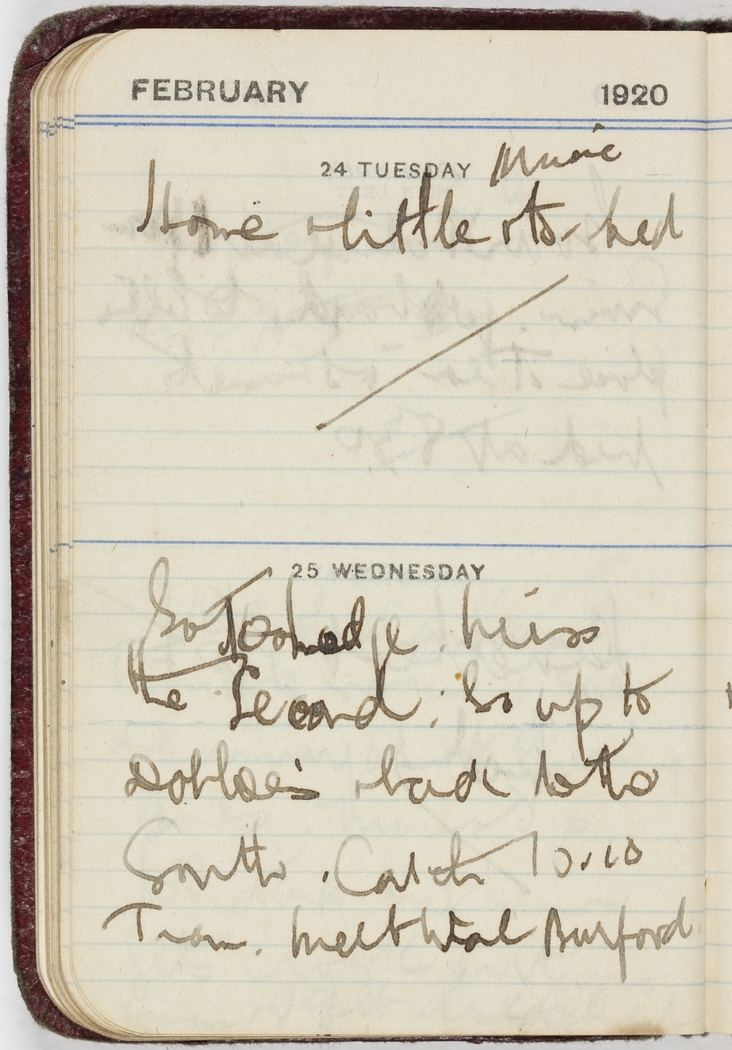 FEBRUARY 1920
24 TUESDAY Music
Home & little & to bed
25 WEDNESDAY
Go To Lodge miss
the Second. Go up to
& back to the
South. Catch 10.10
Tram. Meet Burford